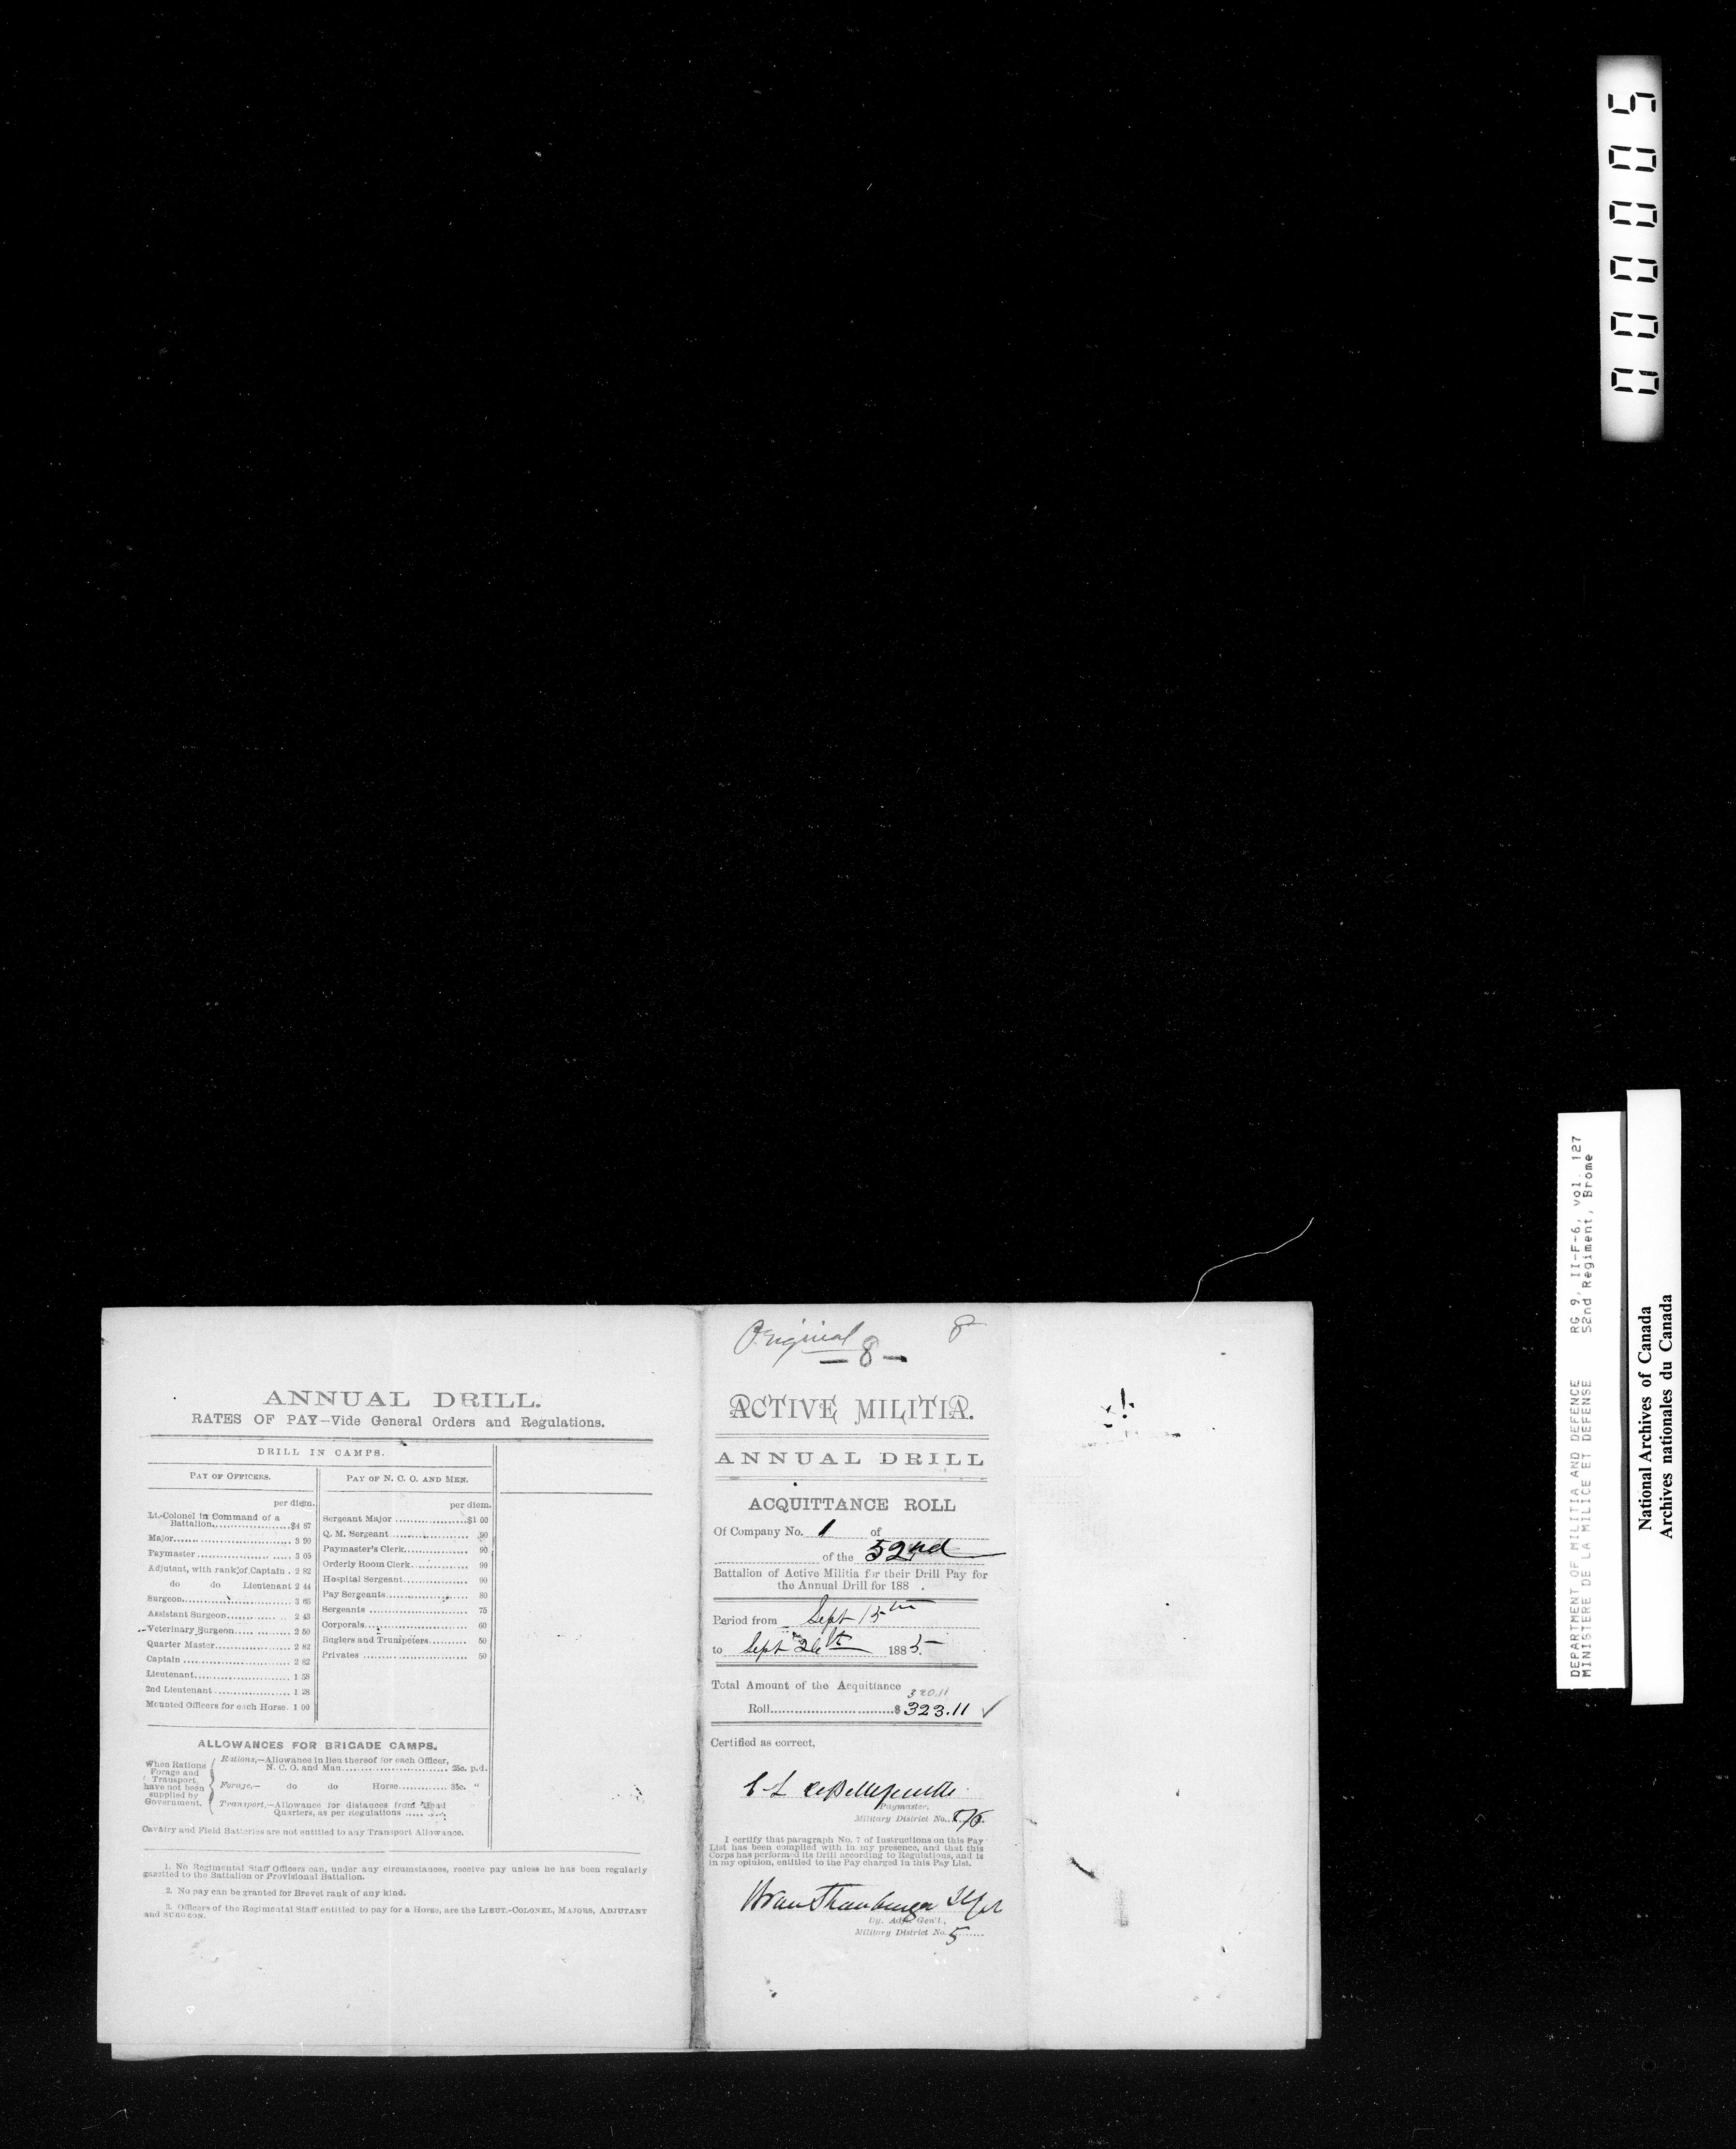 ANNUAL DRILL.
RATES OF PAY—Vide General Orders and Regulations.
DRILL IN CAMPS.
PAY OF OFFICERS.
per diem.
Lt.-Colonel in Command of a
Battalion..................$4 87
Major.............................. 3 90
Paymaster ........................ 3 05
Adjutant, with rank of Captain . 2 82
do do Lieutenant 2 44
Surgeon............................ 3 65
Assistant Surgeon............ .. 2 43
Veterinary Surgeon............. 2 50
Quarter Master................... 2 82
Captain ............................ 2 82
Lieutenant........................ 1 58
2nd Lieutenant .................. 1 28
Mounted Officers for each Horse. 1 00
PAY OF N. C. O. AND MEN.
per diem.
Sergeant Major ..................$1 00
Q. M. Sergeant .................. 90
Paymaster's Clerk............... 90
Orderly Room Clerk............ 90
Hospital Sergeant............... 90
Pay Sergeants.................... 80
Sergeants ......................... 75
Corporals.......................... 60
Buglers and Trumpeters......... 50
Privates ........................... 50
ALLOWANCES FOR BRIGADE CAMPS.
When Rations
Forage and
Transport,
have not been
supplied by
Government.
Rations,—Allowance in lieu thereof for each Officer,
N. C. O. and Man............................ 25c. p.d.
Forage,— do do Horse............ 35c. "
Transport,—Allowance for distances from Head
Quarters, as per Regulations ..........
Cavalry and Field Batteries are not entitled to any Transport Allowance.
1. No Regimental Staff Officers can, under any circumstances, receive pay unless he has been regularly
gazetted to the Battalion or Provisional Battalion.
2. No pay can be granted for Brevet rank of any kind.
3. Officers of the Regimental Staff entitled to pay for a Horse, are the LIEUT.-COLONEL, MAJORS, ADJUTANT
and SURGEON.
Original 8
— 8 —
ACTIVE MILITIA.
ANNUAL DRILL
ACQUITTANCE ROLL
Of Company No. 1 of
of the 52nd
Battalion of Active Militia for their Drill Pay for
the Annual Drill for 188 .
Period from Sept 15th
to Sept 26th 1885.
Total Amount of the Acquittance
320.11
Roll..............................$ 323.11 ✓
Certified as correct,
Paymaster,
Military District No. 5/6.
I certify that paragraph No. 7 of Instructions on this Pay
List has been complied with in my presence, and that this
Corps has performed its Drill according to Regulations, and is
in my opinion, entitled to the Pay charged in this Pay List.
Dy. Adjt. Gen'l.,
Military District No. 5
000005
DEPARTMENT OF MILITIA AND DEFENCE RG 9, II-F-6, vol. 127
MINISTERE DE LA MILICE ET DEFENSE 52nd Regiment, Brome
National Archives of Canada
Archives nationales du Canada